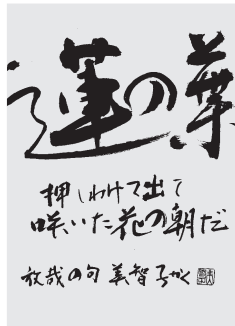 蓮の葉
押しわけて出て
咲いた花の朝だ
放哉の句 美智子かく